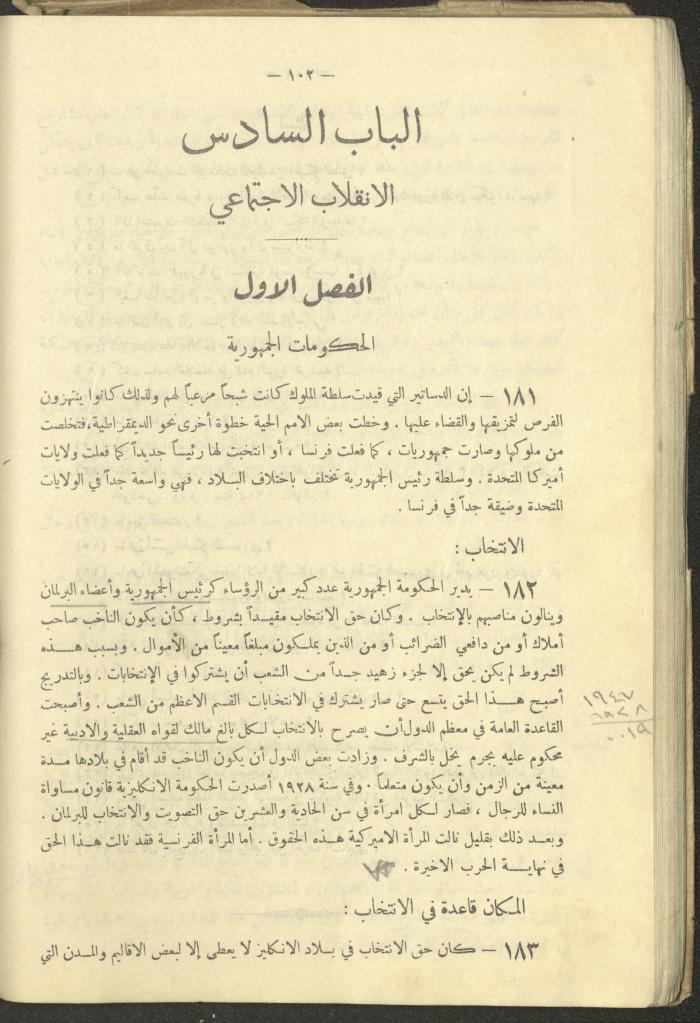 — ١٠٢ —
الباب السادس
الانقلاب الاجتماعي
الفصل الاول
الحكومات الجمهورية
١٨١ — إن الدساتير التي قيدت سلطة الملوك كانت شبحاً مرعباً لهم ولذلك كانوا ينتهزون
الفرص لتمزيقها والقضاء عليها . وخطت بعض الامم الحية خطوة أخرى نحو الديمقراطية، فتخلصت
من ملوكها وصارت جمهوريات ، كما فعلت فرنسا ، أو انتخبت لها رئيساً جديداً كما فعلت ولايات
أميركا المتحدة . وسلطة رئيس الجمهورية تختلف باختلاف البلاد ، فهي واسعة جداً في الولايات
المتحدة وضيقة جداً في فرنسا .
الانتخاب :
١٨٢ — يدير الحكومة الجمهورية عدد كبير من الرؤساء كرئيس الجمهورية وأعضاء البرلمان
وينالون مناصبهم بالإنتخاب . وكان حق الانتخاب مقيداً بشروط ، كأن يكون الناخب صاحب
أملاك أو من دافعي الضرائب أو من الذين يملكون مبلغاً معيناً من الأموال . وبسبب هذه
الشروط لم يكن يحق إلا لجزء زهيد جداً من الشعب أن يشتركوا في الإنتخابات . وبالتدريج
أصبح هذا الحق يتسع حتى صار يشترك في الانتخابات القسم الاعظم من الشعب . وأصبحت
القاعدة العامة في معظم الدول أن يصرح بالانتخاب لكل بالغ مالك لقواه العقلية والادبية غير
محكوم عليه بجرم يخل بالشرف . وزادت بعض الدول أن يكون الناخب قد أقام في بلادها مدة
معينة من الزمن وأن يكون متعلماً . وفي سنة ١٩٢٨ أصدرت الحكومة الانكليزية قانون مساواة
النساء للرجال ، فصار لكل امرأة في سن الحادية والعشرين حق التصويت والانتخاب للبرلمان .
وبعد ذلك بقليل نالت المرأة الاميركية هذه الحقوق . أما المرأة الفرنسية فقد نالت هذا الحق
في نهاية الحرب الاخيرة .
١٩٤٧
١٩٢٨
٠٠١٩
المكان قاعدة في الانتخاب :
١٨٣ — كان حق الانتخاب في بلاد الانكليز لا يعطى إلا لبعض الاقاليم والمدن التي